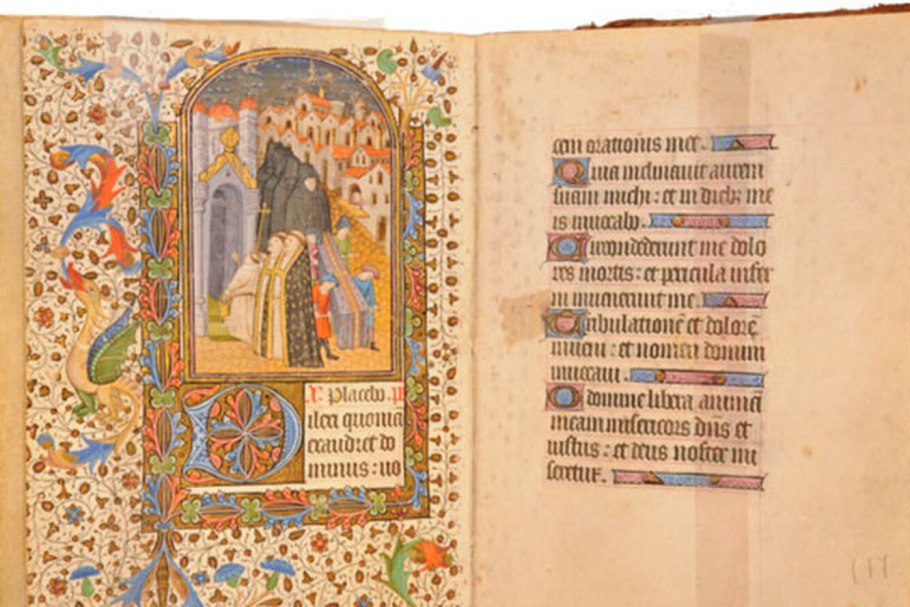 Placebo.
ilexi quonia
exaudiet do
minus : vo
cem orationis mee.
Quia inclinavit aurem
suam michi : et in diebz me
is invocabo.
Circondederunt me dolo
res mortis : et pericula infer
ni invenerunt me.
Tribulationē et dolorē
inveni : et nomen domini
invocavi.
O domine libera animā
meam misericors dn̄s et
iustus : et deus noster mi
seretur.
117